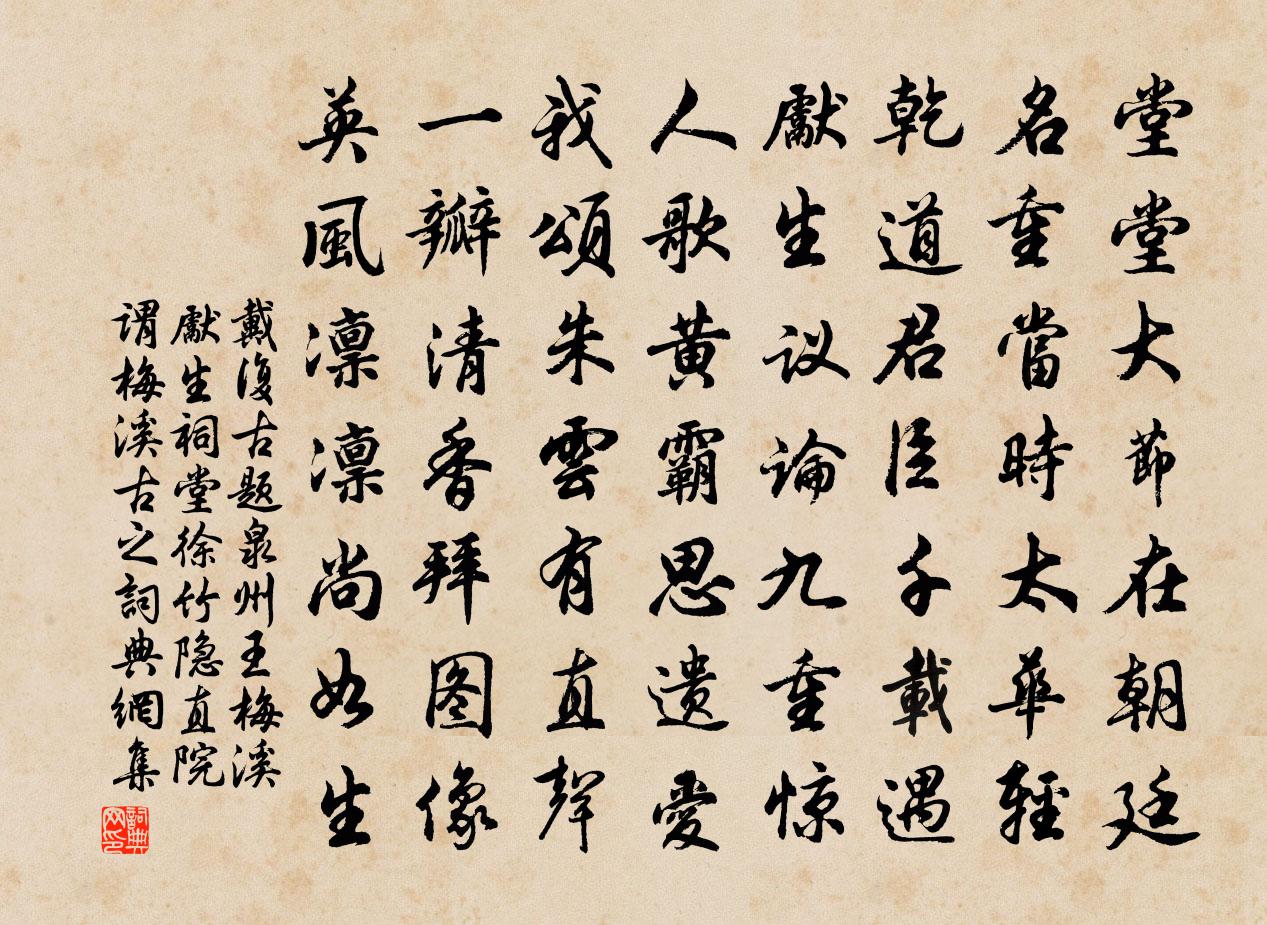 堂堂大節在朝廷
名重當時太華輕
乾道君臣千載遇
獻生议論九重惊
人歌黄霸思遗愛
我頌朱雲有直聲
一瓣清香拜图像
英風凛凛尚如生
戴復古题泉州王梅溪
獻生祠堂徐竹隐直院
谓梅溪古之詞典網集
詞典网印